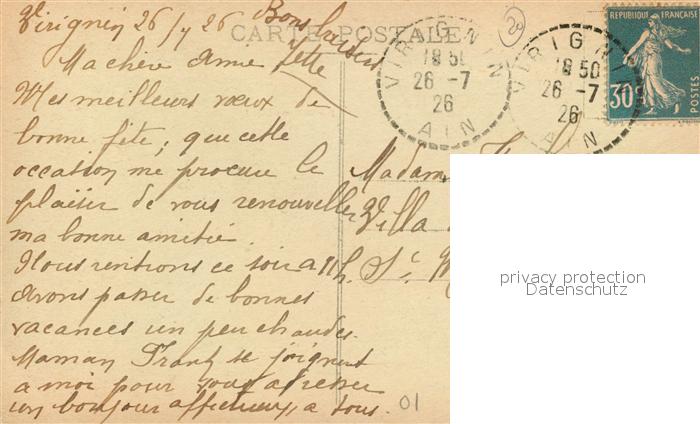 Virignin 26/7 26
Bons baisers
CARTE POSTALE
Ma chère Anne
fête
Mes meilleurs vœux de
bonne fête; que cette
occasion me procure le
plaisir de vous renouveller
ma bonne amitié.
Nous rentrons ce soir a 11h.
Avons passer de bonnes
vacances un peu chaudes.
Maman Frantz se joignent
a moi pour vous adresser
un bonjour affectueux a tous.
01
28
VIRIGNIN
18 50
26 -7
26
AIN
VIRIGNIN
18 50
26 -7
26
AIN
REPUBLIQUE FRANÇAISE
POSTES
30c
Madam
Villa
St
privacy protection
Datenschutz